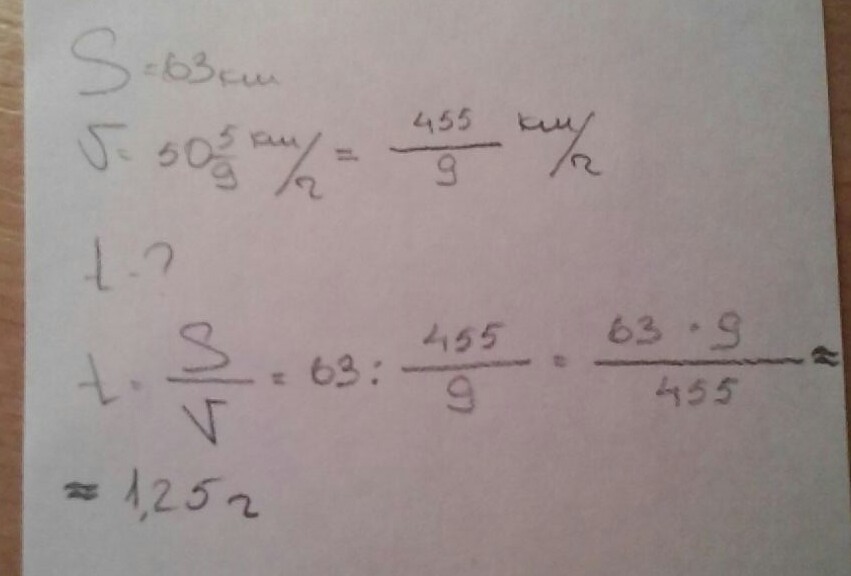 S = 63 км
V = 50 5/9 км/г = 455/9 км/г
t - ?
t = S/V = 63 : 455/9 = 63 · 9/455 ≈
≈ 1,25 г